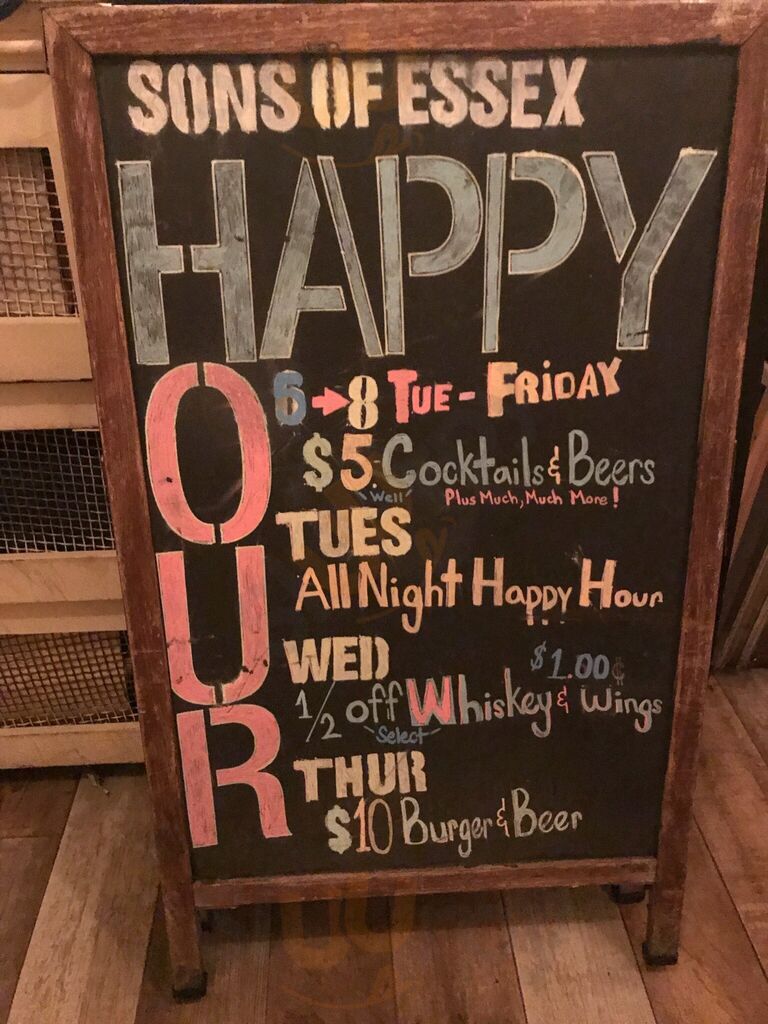 SONS OF ESSEX
HAPPY
HOUR
6→8 TUE - FRIDAY
$5. Cocktails & Beers
Well
Plus Much, Much More!
TUES
All Night Happy Hour
WED
$1.00¢
1/2 off Whiskey & Wings
Select
THUR
$10 Burger & Beer